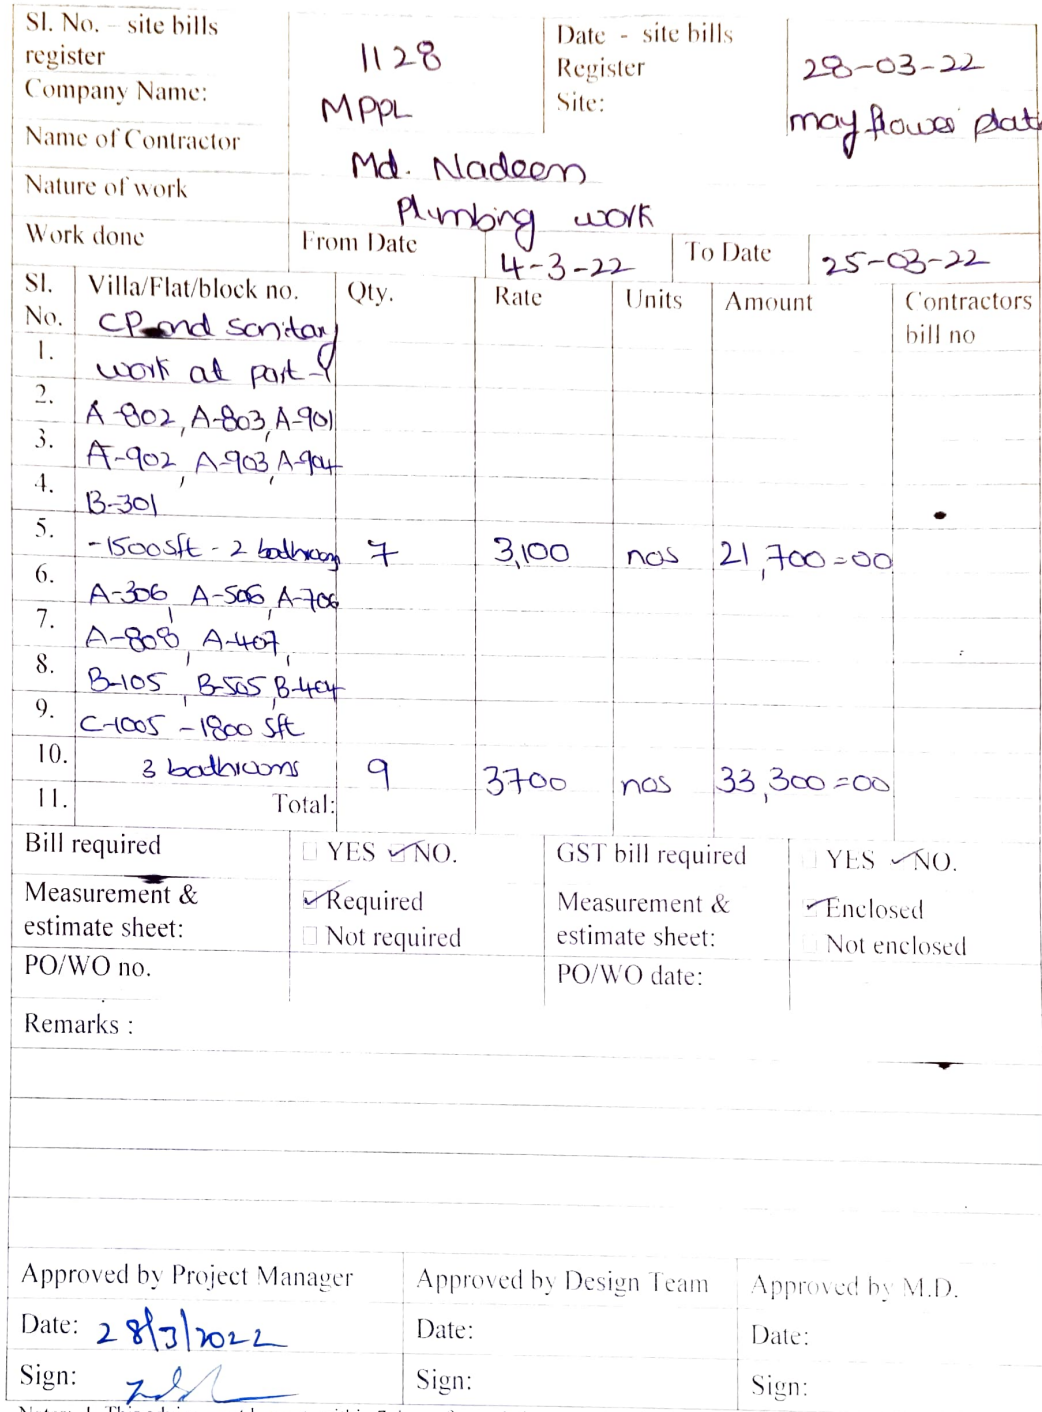 Sl. No. – site bills register 1128 Date - site bills Register 28-03-22
Company Name: MPPL Site: mayflower plati
Name of Contractor Md. Nadeem
Nature of work Plumbing work
Work done From Date 4-3-22 To Date 25-03-22
Sl. No. Villa/Flat/block no. Qty. Rate Units Amount Contractors bill no
CP and sanitary
1. work at part-4
2. A-802, A-803, A-901
3. A-902, A-903, A-904
4. B-301
5. -1500 sft - 2 bathroom 7 3,100 nos 21,700=00
6. A-306, A-506, A-706
7. A-808, A-407,
8. B-105, B-505, B-404
9. C-1005 - 1800 sft
10. 3 bathrooms 9 3700 nos 33,300=00
11. Total:
Bill required YES NO. GST bill required YES NO.
Measurement & estimate sheet: Required Not required Measurement & estimate sheet: Enclosed Not enclosed
PO/WO no. PO/WO date:
Remarks :
Approved by Project Manager Approved by Design Team Approved by M.D.
Date: 28/3/2022 Date: Date:
Sign: Sign: Sign: